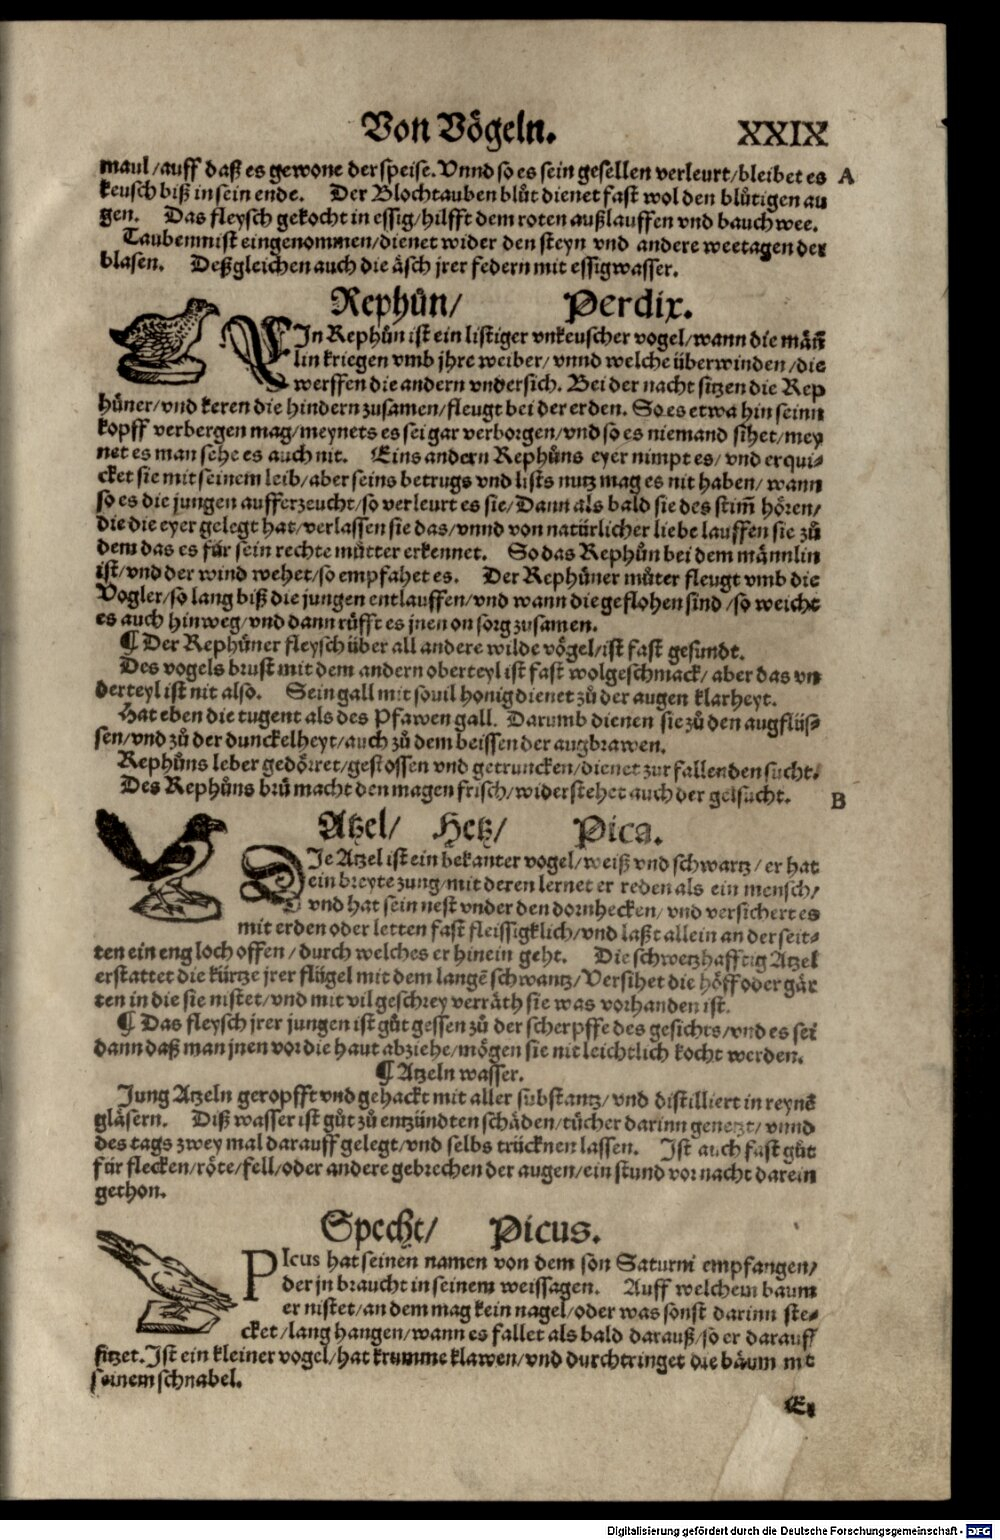 Von Vögeln. XXIX
maul/auff daß es gewone der speise. Vnnd so es sein gesellen verleurt/bleibet es A
keusch biß in sein ende. Der Blochtauben blůt dienet fast wol den blůtigen au
gen. Das fleysch gekocht in essig/hilfft dem roten außlauffen vnd bauch wee.
Taubenmist eingenommen/dienet wider den steyn vnd andere weetagen der
blasen. Deßgleichen auch die äsch jrer federn mit essigwasser.
Rephůn/ Perdix.
EIn Rephůn ist ein listiger vnkeuscher vogel/wann die män̄
lin kriegen vmb jhre weiber/vnnd welche überwinden/die
werffen die andern vndersich. Bei der nacht sitzen die Rep
hůner/vnd keren die hindern zusamen/fleugt bei der erden. So es etwa hin seinn
kopff verbergen mag/meynets es sei gar verborgen/vnd so es niemand sihet/mey
net es man sehe es auch nit. Eins andern Rephůns eyer nimpt es/vnd erqui-
cket sie mit seinem leib/aber seins betrugs vnd lists nutz mag es nit haben/wann
so es die jungen aufferzeucht/so verleurt es sie/Dann als bald sie des stim̄ hören/
die die eyer gelegt hat/verlassen sie das/vnnd von natürlicher liebe lauffen sie zů
dem das es für sein rechte můtter erkennet. So das Rephůn bei dem männlin
ist/vnd der wind wehet/so empfahet es. Der Rephůner můter fleugt vmb die
Vogler/so lang biß die jungen entlauffen/vnd wann die geflohen sind/so weicht
es auch hinweg/vnd dann růfft es jnen on sorg zusamen.
¶ Der Rephůner fleysch über all andere wilde vögel/ist fast gesundt.
Des vogels brust mit dem andern oberteyl ist fast wolgeschmack/aber das vn
derteyl ist nit also. Sein gall mit souil honig dienet zů der augen klarheyt.
Hat eben die tugent als des Pfawen gall. Darumb dienen sie zů den augflüs-
sen/vnd zů der dunckelheyt/auch zů dem beissen der augbrawen.
Rephůns leber gedörret/gestossen vnd getruncken/dienet zur fallenden sucht.
Des Rephůns brů macht den magen frisch/widerstehet auch der gelsucht. B
Atzel/ Hetz/ Pica.
DIe Atzel ist ein bekanter vogel/weiß vnd schwartz/er hat
ein breyte zung/mit deren lernet er reden als ein mensch/
vnd hat sein nest vnder den dornhecken/vnd versichert es
mit erden oder letten fast fleissigklich/vnd laßt allein an der seit-
ten ein eng loch offen/durch welches er hinein geht. Die schwetzhafftig Atzel
erstattet die kürtze jrer flügel mit dem langē schwantz/Versihet die höff oder gär
ten in die sie nistet/vnd mit vil geschrey verräth sie was vorhanden ist.
¶ Das fleysch jrer jungen ist gůt gessen zů der scherpffe des gesichts/vnd es sei
dann daß man jnen vor die haut abziehe/mögen sie nit leichtlich kocht werden.
¶ Atzeln wasser.
Jung Atzeln geropfft vnd gehackt mit aller substantz/vnd distilliert in reynē
gläsern. Diß wasser ist gůt zů entzündten schäden/tücher darinn genetzt/vnnd
des tags zwey mal darauff gelegt/vnd selbs trücknen lassen. Ist auch fast gůt
für flecken/röte/fell/oder andere gebrechen der augen/ein stund vor nacht darein
gethon.
Specht/ Picus.
PIcus hat seinen namen von dem son Saturni empfangen/
der jn braucht in seinem weissagen. Auff welchem baum
er nistet/an dem mag kein nagel/oder was sonst darinn ste-
cket/lang hangen/wann es fallet als bald darauß/so er darauff
sitzet. Ist ein kleiner vogel/hat krumme klawen/vnd durchtringet die bäum mit
seinem schnabel.
Digitalisierung gefördert durch die Deutsche Forschungsgemeinschaft - DFG